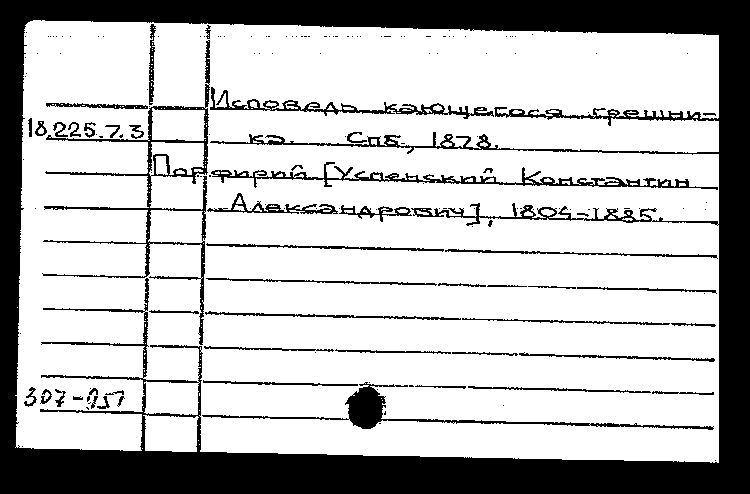 Исповедь кающегося грешни-
18.225.7.3 ка. Спб., 1878.
Порфирий [Успенский Константин
Александрович], 1804-1885.
307-